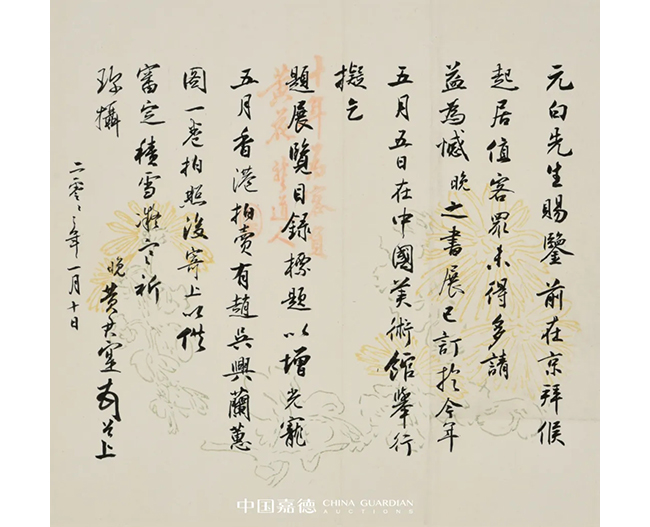 元白先生賜鑒前在京拜候
起居值客眾未得多請
益為憾晚之書展已訂於今年
五月五日在中國美術館舉行
擬乞
題展覽目錄標題以增光寵
五月香港拍賣有趙吳興蘭蕙
圖一卷拍照後寄上以供
審定積雪凝寒祈
珍攝
晚黃君寔敬上
年一月十日
中国嘉德 CHINA GUARDIAN
AUCTIONS